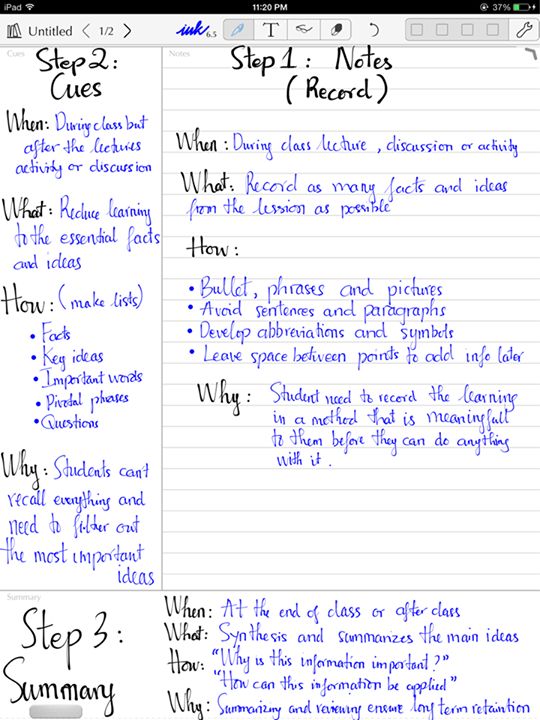 iPad
11:20 PM
37%
Untitled
1/2
ink 6.5
T
Cues
Step 2:
Cues
When: During class but
after the lectures
activity or discussion
What: Reduce learning
to the essential facts
and ideas
How: (make lists)
• Facts
• Key ideas
• Important words
• Pivotal phrases
• Questions
Why: Students can't
recall everything and
need to filter out
the most important
ideas
Notes
Step 1: Notes
(Record)
When: During class lecture, discussion or activity
What: Record as many facts and ideas
from the lession as possible
How:
• Bullet, phrases and pictures
• Avoid sentences and paragraphs
• Develop abbreviations and symbols
• Leave space between points to add info later
Why: Student need to record the learning
in a method that is meaningfull
to them before they can do anything
with it.
Summary
Step 3:
Summary
When: At the end of class or after class
What: Synthesis and summarizes the main ideas
How: "Why is this information important?"
"How can this information be applied"
Why: Summarizing and reviewing ensure long term retaintion